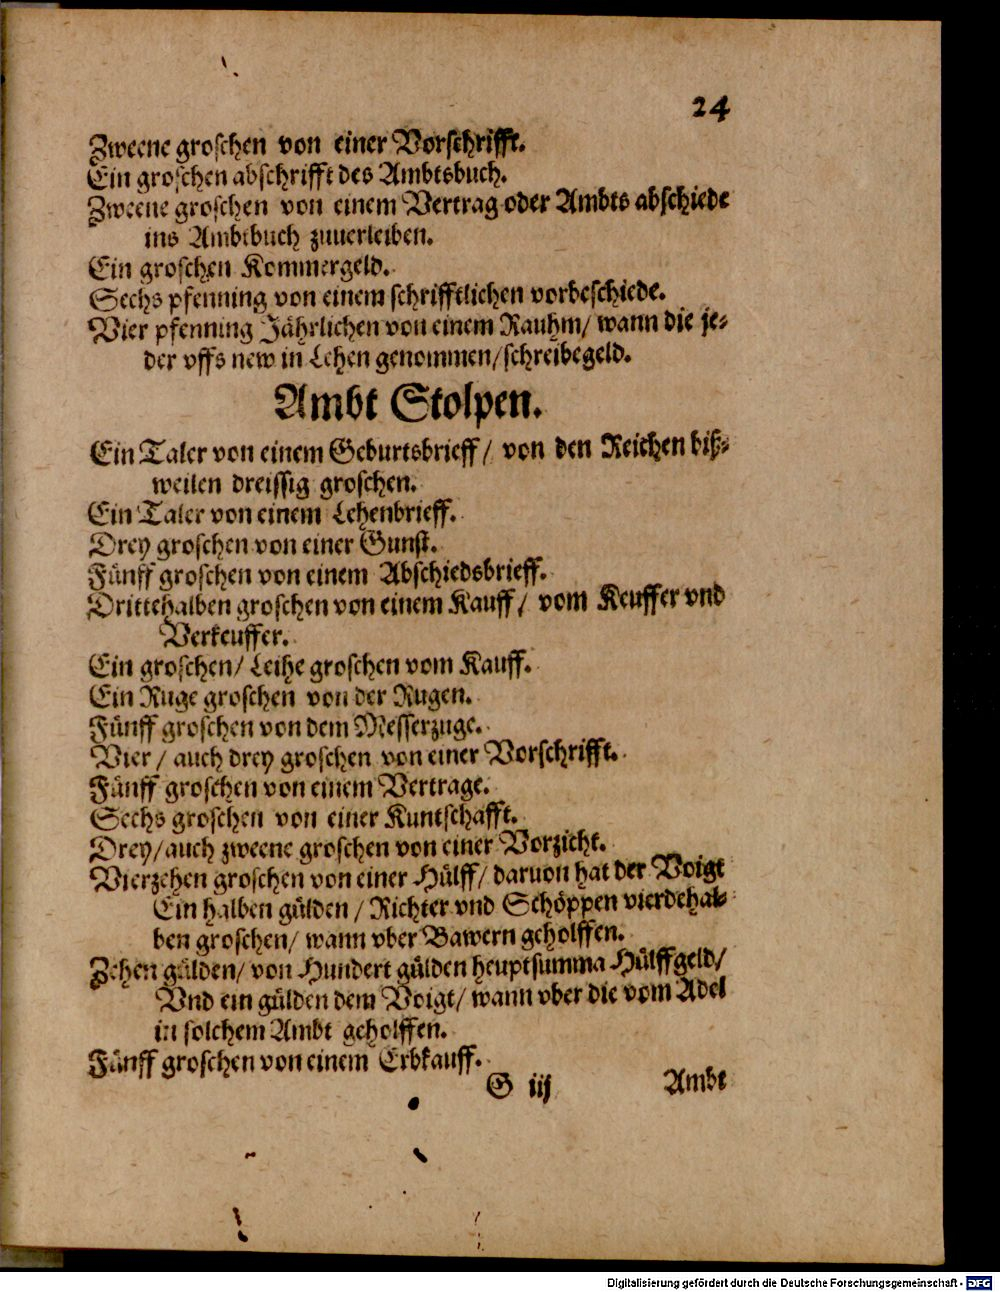 24
Zweene groschen von einer Vorschrifft.
Ein groschen abschrifft des Ambtsbuch.
Zweene groschen von einem Vertrag oder Ambts abschiede
ins Ambtbuch zuuerleiben.
Ein groschen Kommergeld.
Sechs pfenning von einem schrifftlichen vorbeschiede.
Vier pfenning Jährlichen von einem Rauhm/ wann die je-
der vffs new in Lehen genommen/ schreibegeld.
Ambt Stolpen.
Ein Taler von einem Geburtsbrieff/ von den Reichen biß-
weilen dreissig groschen.
Ein Taler von einem Lehenbrieff.
Drey groschen von einer Gunst.
Fünff groschen von einem Abschiedsbrieff.
Drittehalben groschen von einem Kauff/ vom Keuffer vnd
Verkeuffer.
Ein groschen/ Leihe groschen vom Kauff.
Ein Ruge groschen von der Rugen.
Fünff groschen von dem Messerzuge.
Vier/ auch drey groschen von einer Vorschrifft.
Fünff groschen von einem Vertrage.
Sechs groschen von einer Kuntschafft.
Drey/ auch zweene groschen von einer Vorzicht.
Vierzehen groschen von einer Hülff/ daruon hat der Voigt
Ein halben gülden/ Richter vnd Schöppen vierdehal-
ben groschen/ wann vber Bawern geholffen.
Zehen gülden/ von Hundert gülden heuptsumma Hülffgeld/
Vnd ein gülden dem Voigt/ wann vber die vom Adel
in solchem Ambt geholffen.
Fünff groschen von einem Erbkauff.
G iij Ambt
Digitalisierung gefördert durch die Deutsche Forschungsgemeinschaft - DFG